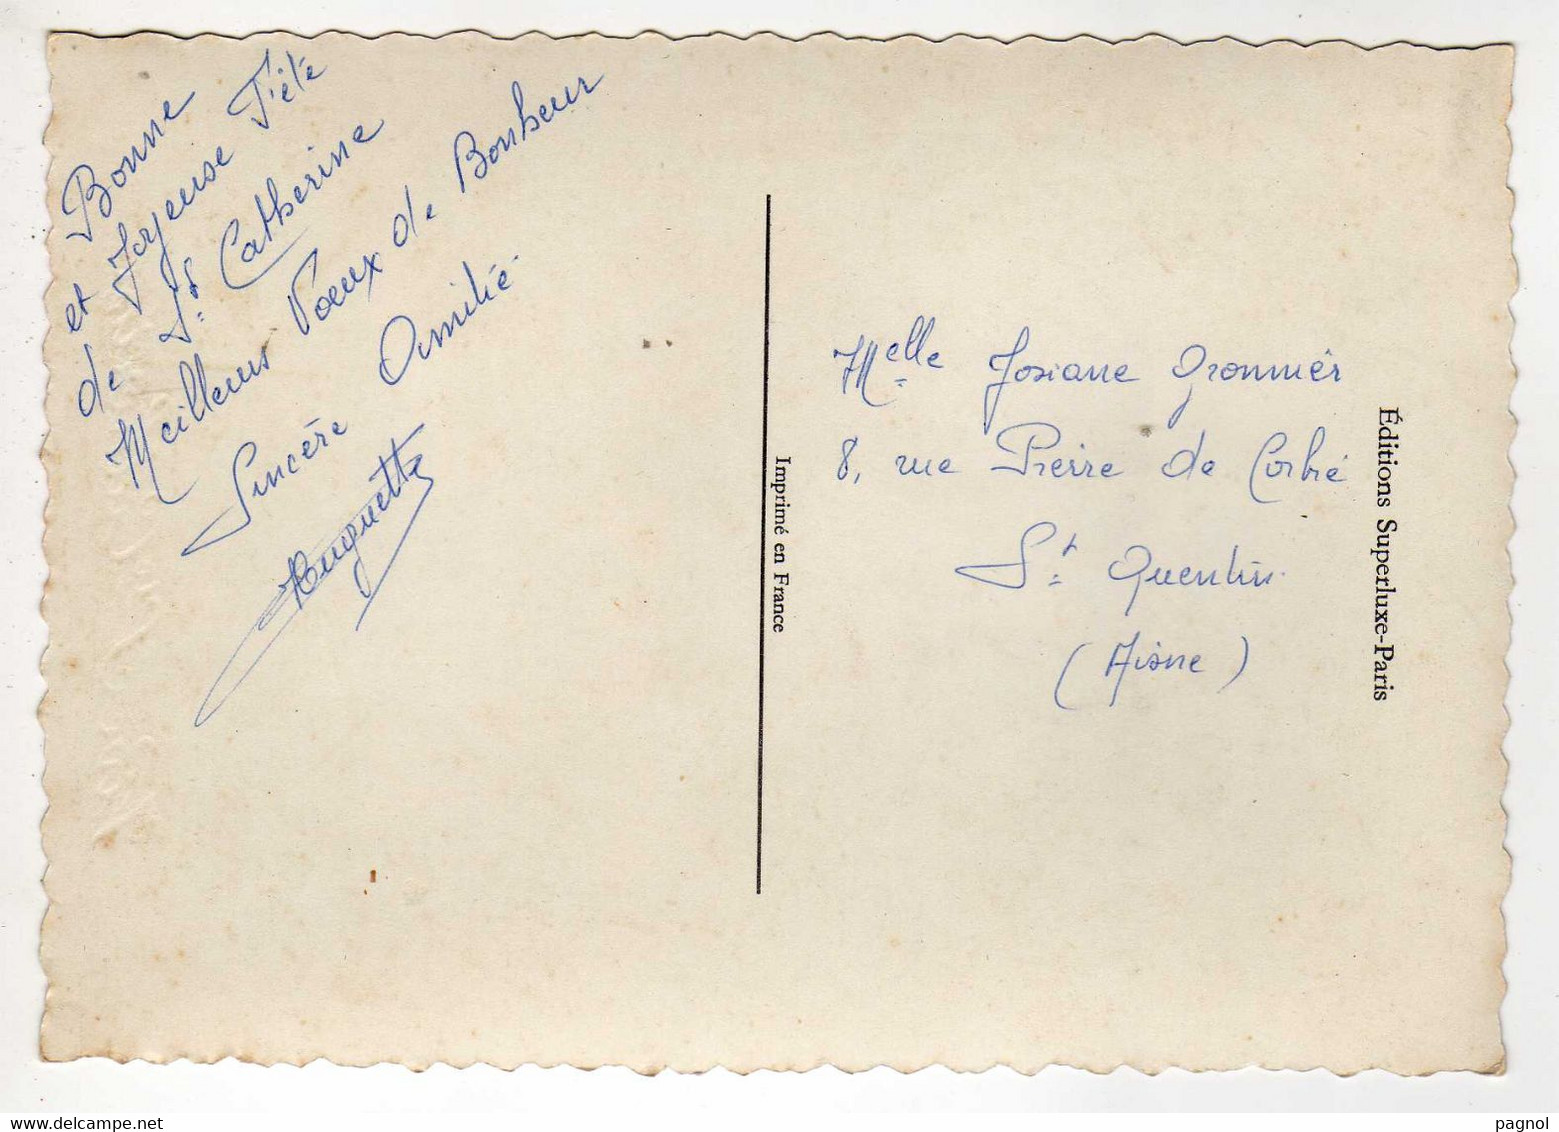 Bonne
et Joyeuse Fété
de Ste Catherine
Meilleurs Voeux de Bonheur
Sincère Amitié
Huguette
Imprimé en France
Melle Josiane Gronnier
8, rue Pierre de Corbie
St Quentin
(Aisne)
Éditions Superluxe-Paris
www.delcampe.net
pagnol